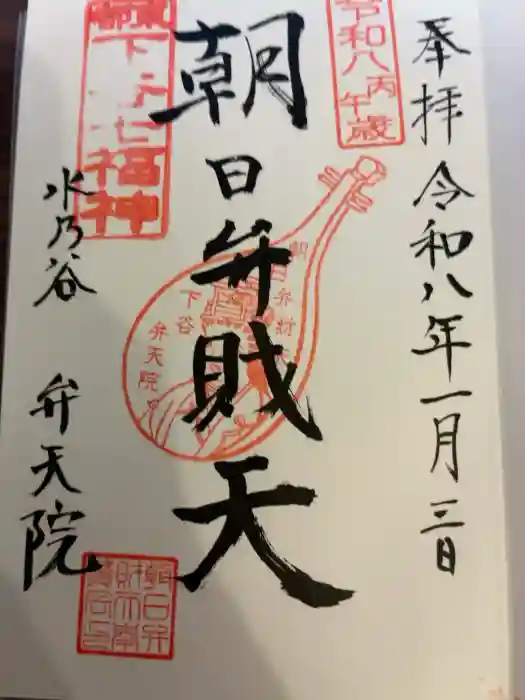 奉拝 令和八年一月三日
令和八丙午歳
朝日弁財天
朝日弁財天
下谷
弁天院
下谷七福神
水乃谷 弁天院